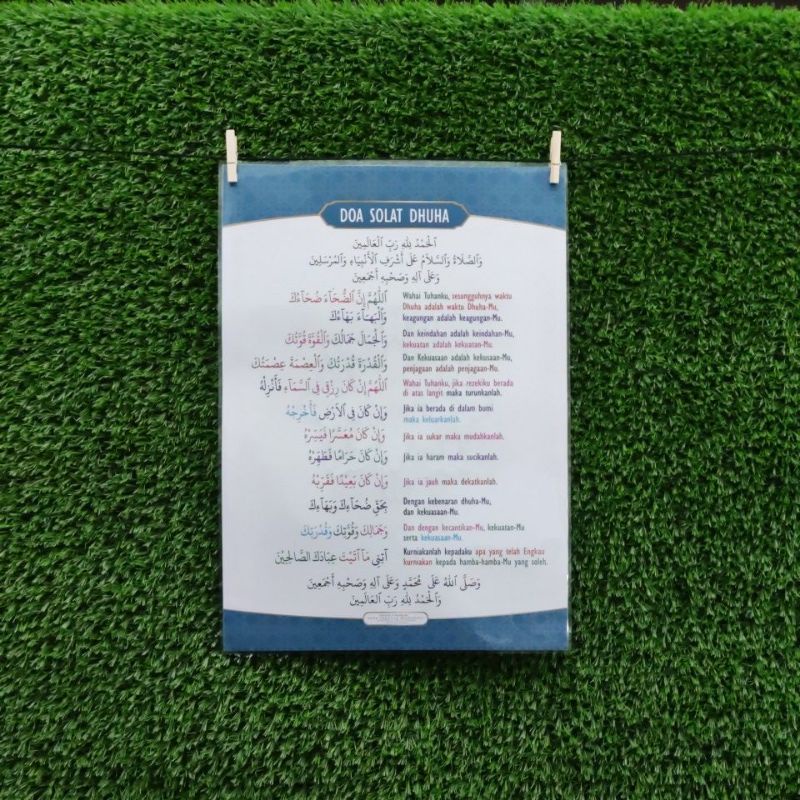 DOA SOLAT DHUHA
اَلْحَمْدُ لِلّٰهِ رَبِّ الْعَالَمِيْنَ
وَالصَّلَاةُ وَالسَّلَامُ عَلَى أَشْرَفِ الْأَنْبِيَاءِ وَالْمُرْسَلِيْنَ
وَعَلَى آلِهِ وَصَحْبِهِ أَجْمَعِيْنَ
اَللّٰهُمَّ إِنَّ الضُّحَآءَ ضُحَآءُكَ
وَالْبَهَآءَ بَهَآءُكَ
Wahai Tuhanku, sesungguhnya waktu
Dhuha adalah waktu Dhuha-Mu,
keagungan adalah keagungan-Mu.
وَالْجَمَالَ جَمَالُكَ وَالْقُوَّةَ قُوَّتُكَ
Dan keindahan adalah keindahan-Mu,
kekuatan adalah kekuatan-Mu.
وَالْقُدْرَةَ قُدْرَتُكَ وَالْعِصْمَةَ عِصْمَتُكَ
Dan Kekuasaan adalah kekusaan-Mu,
penjagaan adalah penjagaan-Mu.
اَللّٰهُمَّ إِنْ كَانَ رِزْقِي فِي السَّمَآءِ فَأَنْزِلْهُ
Wahai Tuhanku, jika rezekiku berada
di atas langit maka turunkanlah.
وَإِنْ كَانَ فِي الْأَرْضِ فَأَخْرِجْهُ
Jika ia berada di dalam bumi
maka keluarkanlah.
وَإِنْ كَانَ مُعَسَّرًا فَيَسِّرْهُ
Jika ia sukar maka mudahkanlah.
وَإِنْ كَانَ حَرَامًا فَطَهِّرْهُ
Jika ia haram maka sucikanlah.
وَإِنْ كَانَ بَعِيْدًا فَقَرِّبْهُ
Jika ia jauh maka dekatkanlah.
بِحَقِّ ضُحَآءِكَ وَبَهَآءِكَ
Dengan kebenaran dhuha-Mu,
dan kekuasaan-Mu.
وَجَمَالِكَ وَقُوَّتِكَ وَقُدْرَتِكَ
Dan dengan kecantikan-Mu, kekuatan-Mu
serta kekuasaan-Mu.
آتِنِي مَآ آتَيْتَ عِبَادَكَ الصَّالِحِيْنَ
Kurniakanlah kepadaku apa yang telah Engkau
kurniakan kepada hamba-hamba-Mu yang soleh.
وَصَلَّى اللهُ عَلَى مُحَمَّدٍ وَعَلَى آلِهِ وَصَحْبِهِ أَجْمَعِيْنَ
وَالْحَمْدُ لِلّٰهِ رَبِّ الْعَالَمِيْنَ